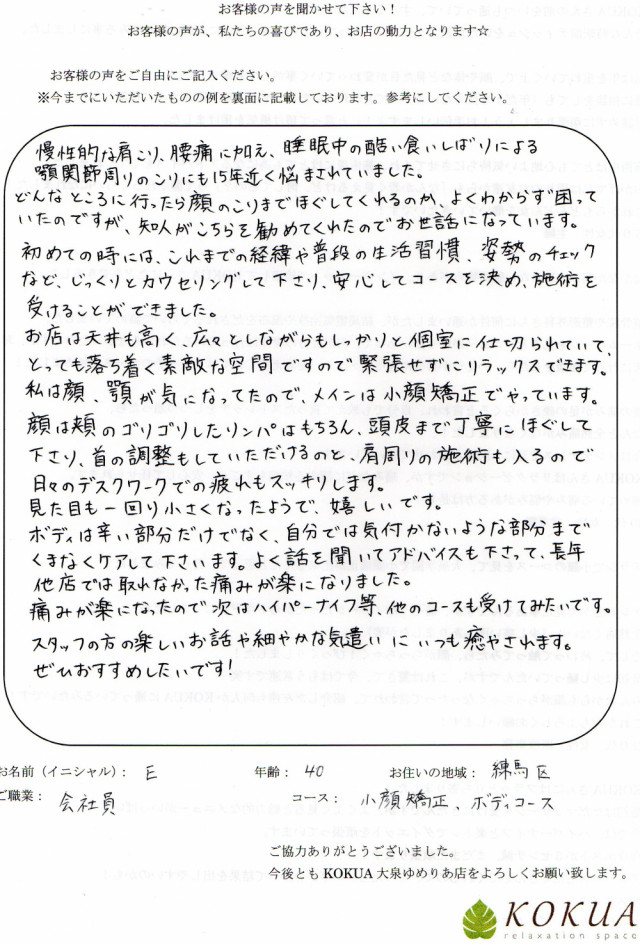 お客様の声を聞かせて下さい！
お客様の声が、私たちの喜びであり、お店の動力となります☆
お客様の声をご自由にご記入ください。
※今までにいただいたものの例を裏面に記載しております。参考にしてください。
慢性的な肩こり、腰痛に加え、睡眠中の酷い食いしばりによる
顎関節周りのこりにも15年近く悩まされていました。
どんなところに行ったら顔のこりまでほぐしてくれるのか、よくわからず困って
いたのですが、知人がこちらを勧めてくれたのでお世話になっています。
初めての時には、これまでの経緯や普段の生活習慣、姿勢のチェック
など、じっくりとカウセリングして下さり、安心してコースを決め、施術を
受けることができました。
お店は天井も高く、広々としながらもしっかりと個室に仕切られていて、
とっても落ち着く素敵な空間ですので緊張せずにリラックスできます。
私は顔、顎が気になってたので、メインは小顔矯正でやっています。
顔は頬のゴリゴリしたリンパはもちろん、頭皮まで丁寧にほぐして
下さり、首の調整もしていただけるのと、肩周りの施術も入るので
日々のデスクワークでの疲れもスッキリします。
見た目も一回り小さくなったようで、嬉しいです。
ボディは辛い部分だけでなく、自分では気付かないような部分まで
くまなくケアして下さいます。よく話を聞いてアドバイスも下さって、長年
他店では取れなかった痛みが楽になりました。
痛みが楽になったので次はハイパーナイフ等、他のコースも受けてみたいです。
スタッフの方の楽しいお話や細やかな気遣いにいつも癒やされます。
ぜひおすすめしたいです！
お名前（イニシャル）： E 年齢： 40 お住いの地域： 練馬区
ご職業： 会社員 コース： 小顔矯正、ボディコース
ご協力ありがとうございました。
今後とも KOKUA 大泉ゆめりあ店をよろしくお願い致します。
KOKUA
relaxation space